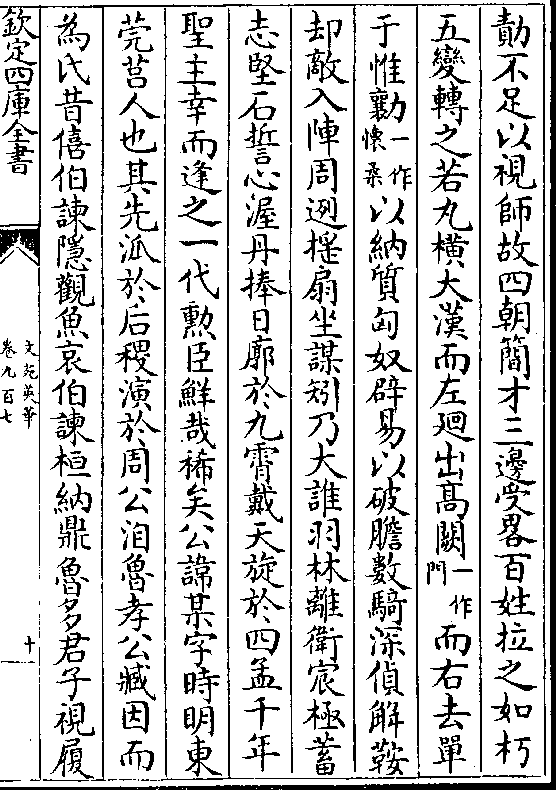 勣不足以視師故四朝簡才三邊受畧百姓拉之如朽
五變轉之若丸橫大漢而左廻出髙闕一作門而右去單
于惟勷一作懷桑以納質匈奴辟易以破膽數騎深偵解鞍
却敵入陣周遊揺扇坐謀矧乃大誰羽林離衛宸極蓄
志堅石誓心渥丹捧日廓於九霄戴天旋於四孟千年
聖主幸而逢之一代勲臣鮮哉稀矣公諱某字時明東
莞莒人也其先派於后稷演於周公洎魯孝公臧因而
為氏昔僖伯諫隱觀魚哀伯諫桓納鼎魯多君子視履
欽定四庫全書
文苑英華
卷九百七
十